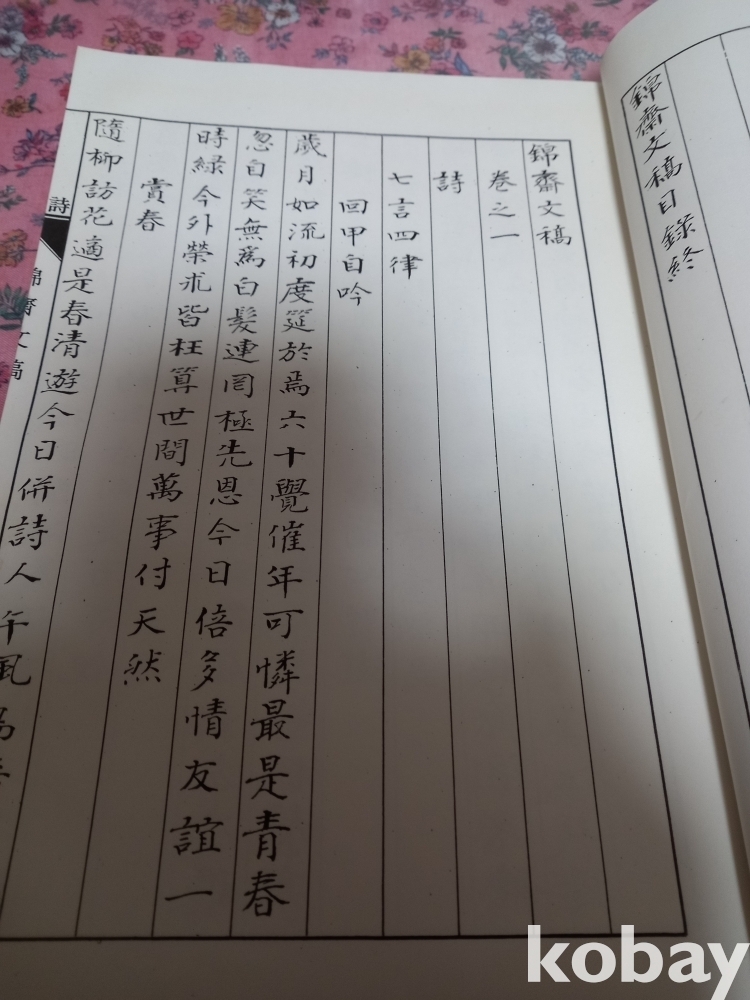 錦齋文稿目錄終
錦齋文稿
卷之一
詩
七言四律
回甲自吟
歲月如流初度筵於焉六十覺催年可憐最是青春
忽自笑無爲白髮連罔極先恩今日倍多情友誼一
時綠今外榮求皆枉算世間萬事付天然
賞春
隨柳訪花適是春清遊今日併詩人午風
詩
錦齋文稿
kobay